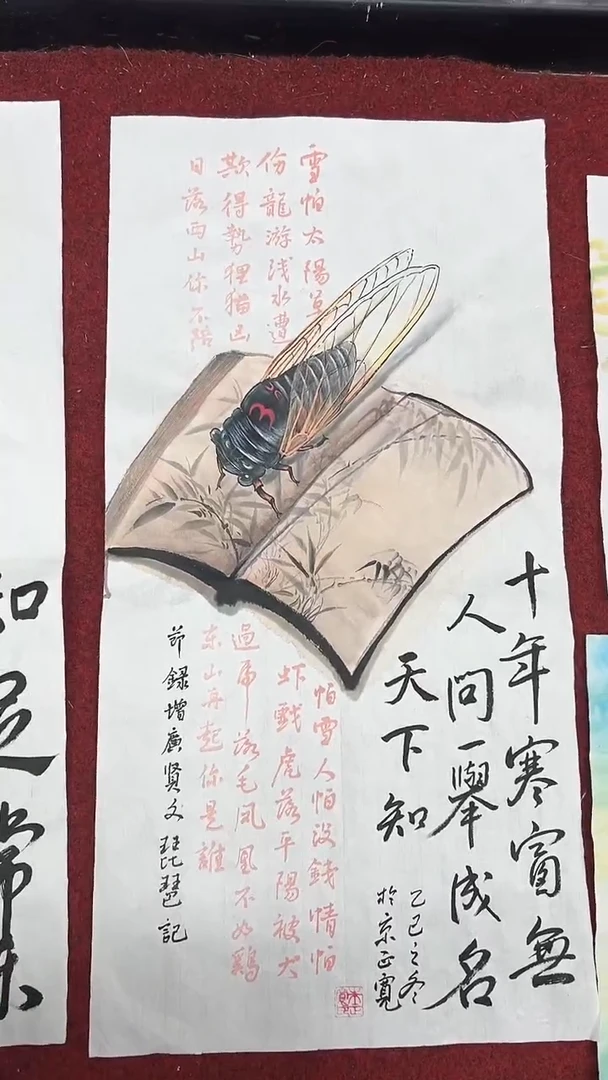 十年寒窗無
人問一舉成名
天下知
乙巳之冬
於京正寬
雪怕太陽草怕雪人怕没錢情怕
份龍游浅水遭虾戲虎落平陽被犬
欺得勢狸猫凶過虎落毛凤凰不如鷄
日落西山你不陪东山再起你是誰
节録增廣賢文琵琶記
知足常乐